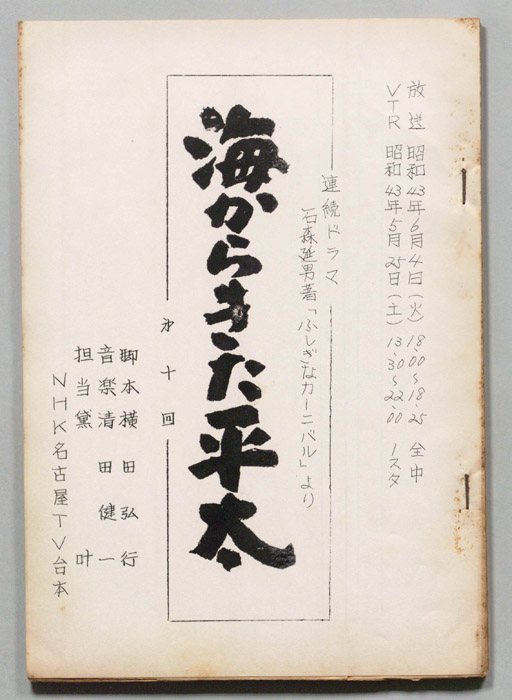 放送 昭和43年6月4日(火) 18.00〜18.25 全中
VTR 昭和43年5月25日(土) 13.30〜22.00 1スタ
連続ドラマ
石森延男著「ふしぎなカーニバル」より
海からきた平太
第十回
脚本 横田弘行
音楽 清田健一
担当 黛叶
NHK名古屋TV台本